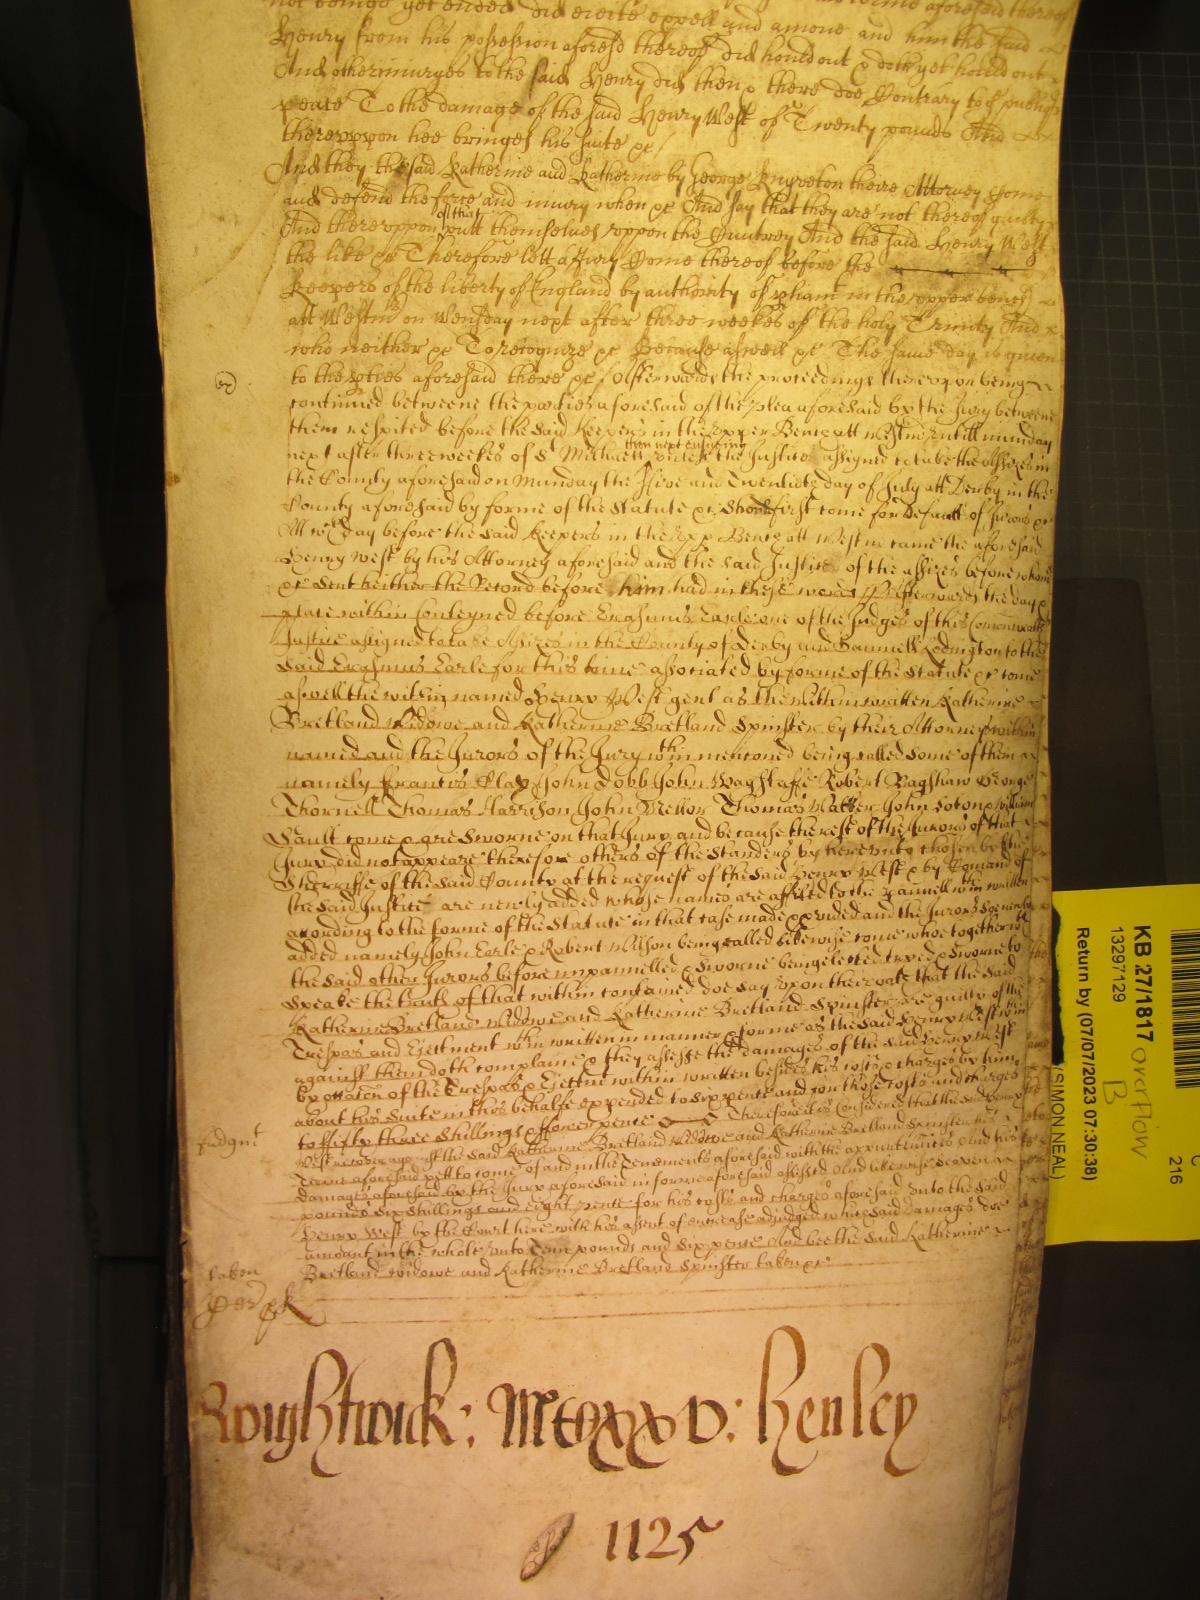 not beinge yet ended did eiecte expell and amove and him the said
Henry from his possession aforesd thereof did hould out & doth yet hould out
And other iniuryes to the said Henry did then & there doe Contrary to the publiq
peace To the damage of the said Henry West of Twenty pounds And
thereuppon hee bringes his suite &c /
And they the said Katherine and Katherine by George Knyveton theire Attorney Come
and defend the force and iniury when &c And say that they are not thereof guilty
of that
And thereuppon putt themselves uppon the Cuntrey And the said Henry West
the like &c Therefore lett a Jury Come thereof before the
Keepers of the liberty of England by authority of parliamt in the upper bench
att Westmr on Wensday next after three weekes of the holy Trinity And
who neither &c To recognize &c Because aswell &c The same day is given
to the pties aforesaid there &c / Afterwards the proceedings thereupon being
continued betweene the parties aforesaid of the plea aforesaid by the Jury betweene
them respited before the said Keepers in the Upper Bench att Westmr untill munday
then next ensueing
next after three weekes of St Michaell unles the Justices assigned to take the Assizes in
the County aforesaid on Munday the Five and Twentieth day of July att Derby in the
County aforesaid by forme of the Statute &c should first come for default of Jurors &c
Att wch day before the said Keepers in the Upp Bench att Westmr came the aforesaid
Henry West by his Attorney aforesaid and the said Justices of the assizes before whome
&c sent heither the Record before him had in these words / Afterwards the day &
place within conteyned before Erasmus Earle one of the Judges of this Comonwealth
Justice assigned to take Assizes in the County of Derby and Samuell Lodington to the
said Erasmus Earle for this time associated by forme of the Statute &c come
aswell the within named Henry West gent as the within written Katherine
Bretland Widowe and Katherine Bretland Spinster by their Attorney within
named and the Jurors of the Jury wthin mencioned being called some of them
namely Francis Clay John Dobb John Wagstaffe Robert Bagshaw George
Thornell Thomas Harrison John Mellor Thomas Walker John Coton & William
Sault come & are sworne on that Jury and because the rest of the Jurors of that
Jury did not appeare therefore others of the standers by hereunto chosen by the
Sherriffe of the said County at the request of the said Henry West & by Comand of
the said Justice are newly added whose names are affiled to the pannell wthin written
according to the forme of the Statute in that case made & pvided and the Jurors soe newly
added namely John Earle & Robert Wilson being called likewise come whoe together wth
the said other Jurors before impannelled & sworne being elected tryed & sworne to
speake the truth of that within contained doe say upon their oath that the said
Katherine Bretland Widowe and Katherine Bretland Spinster are guilty of the
Trespas and Ejectment wthin written in manner & forme as the said Henry West wthin
against them doth complaine & they assesse the damages of the said Henry West
by occation of the Trespas & Ejectmt within written besides his costs & charges by him
about his suite in this behalfe expended to sixpence and for those costs and charges
to fifty three shillings & fower pence Therefore it is Considered that the said Henry
Judgmt
West recover against the said Katherine Bretland Widowe and Katherine Bretland Spinster his
Terme aforesaid yett to come of and in the Tenements aforesaid with the appurtenances And his
damages aforesaid by the Jury aforesaid in forme aforesaid assessed And likewise Seaven
pounds six shillings and eight pence for his costs and charges aforesaid unto the said
Henry West by the Court here with his assent of encrease adjudged which said damages doe
amount in the whole unto Tenn pounds and sixpence And bee the said Katherine
Bretland widowe and Katherine Bretland Spinster taken &c
taken
Roughtwick: Mccxxv: Henley
1125
KB 27/1817 overflow B
13297129
Return by (07/07/2023 07:30:38)
(SIMON NEAL)
216